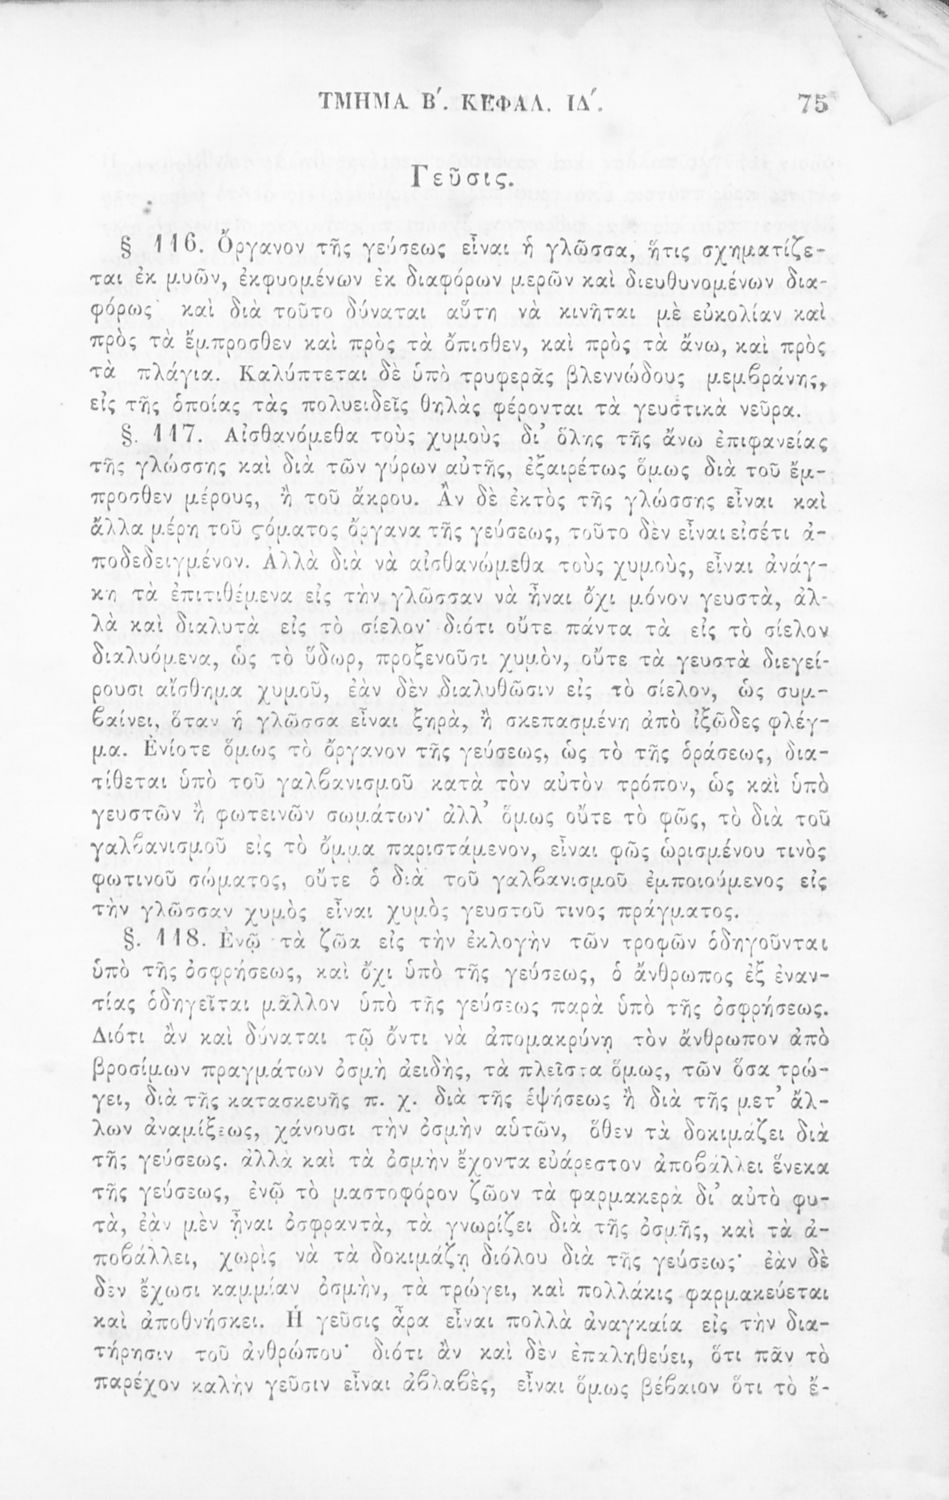 ΤΜΗΜΑ Β΄. ΚΕΦΑΛ. ΙΔ΄. 75
Γεῦσις.
§ 116. Ὄργανον τῆς γεύσεως εἶναι ἡ γλῶσσα, ἥτις σχηματίζε-
ται ἐκ μυῶν, ἐκφυομένων ἐκ διαφόρων μερῶν καὶ διευθυνομένων δια-
φόρως· καὶ διὰ τοῦτο δύναται αὕτη νὰ κινῆται μὲ εὐκολίαν καὶ
πρὸς τὰ ἔμπροσθεν καὶ πρὸς τὰ ὄπισθεν, καὶ πρὸς τὰ ἄνω, καὶ πρὸς
τὰ πλάγια. Καλύπτεται δὲ ὑπὸ τρυφερᾶς βλεννώδους μεμϐράνης,
εἰς τῆς ὁποίας τὰς πολυειδεῖς θηλὰς φέρονται τὰ γευστικὰ νεῦρα.
§. 117. Αἰσθανόμεθα τοὺς χυμοὺς δι᾽ ὅλης τῆς ἄνω ἐπιφανείας
τῆς γλώσσης καὶ διὰ τῶν γύρων αὐτῆς, ἐξαιρέτως ὅμως διὰ τοῦ ἔμ-
προσθεν μέρους, ἢ τοῦ ἄκρου. Ἂν δὲ ἐκτὸς τῆς γλώσσης εἶναι καὶ
ἄλλα μέρη τοῦ ϛόματος ὄργανα τῆς γεύσεως, τοῦτο δὲν εἶναι εἰσέτι ἀ-
ποδεδειγμένον. Ἀλλὰ διὰ νὰ αἰσθανώμεθα τοὺς χυμοὺς, εἶναι ἀνάγ-
κη τὰ ἐπιτιθέμενα εἰς τὴν γλῶσσαν νὰ ἦναι ὄχι μόνον γευστὰ, ἀλ-
λὰ καὶ διαλυτὰ εἰς τὸ σίελον· διότι οὔτε πάντα τὰ εἰς τὸ σίελον
διαλυόμενα, ὡς τὸ ὕδωρ, προξενοῦσι χυμὸν, οὔτε τὰ γευστὰ διεγεί-
ρουσι αἴσθημα χυμοῦ, ἐὰν δὲν διαλυθῶσιν εἰς τὸ σίελον, ὡς συμ-
ϐαίνει, ὅταν ἡ γλῶσσα εἶναι ξηρὰ, ἢ σκεπασμένη ἀπὸ ἰξῶδες φλέγ-
μα. Ἐνίοτε ὅμως τὸ ὄργανον τῆς γεύσεως, ὡς τὸ τῆς ὁράσεως, δια-
τίθεται ὑπὸ τοῦ γαλϐανισμοῦ κατὰ τὸν αὐτὸν τρόπον, ὡς καὶ ὑπὸ
γευστῶν ἢ φωτεινῶν σωμάτων· ἀλλ᾽ ὅμως οὔτε τὸ φῶς, τὸ διὰ τοῦ
γαλϐανισμοῦ εἰς τὸ ὄμμα παριστάμενον, εἶναι φῶς ὡρισμένου τινὸς
φωτινοῦ σώματος, οὔτε ὁ διὰ τοῦ γαλϐανισμοῦ ἐμποιούμενος εἰς
τὴν γλῶσσαν χυμὸς εἶναι χυμὸς γευστοῦ τινος πράγματος.
§. 118. Ἐνῷ τὰ ζῶα εἰς τὴν ἐκλογὴν τῶν τροφῶν ὁδηγοῦνται
ὑπὸ τῆς ὀσφρήσεως, καὶ ὄχι ὑπὸ τῆς γεύσεως, ὁ ἄνθρωπος ἐξ ἐναν-
τίας ὁδηγεῖται μᾶλλον ὑπὸ τῆς γεύσεως παρὰ ὑπὸ τῆς ὀσφρήσεως.
Διότι ἂν καὶ δύναται τῷ ὄντι νὰ ἀπομακρύνῃ τὸν ἄνθρωπον ἀπὸ
βροσίμων πραγμάτων ὀσμὴ ἀειδὴς, τὰ πλεῖστα ὅμως, τῶν ὅσα τρώ-
γει, διὰ τῆς κατασκευῆς π. χ. διὰ τῆς ἑψήσεως ἢ διὰ τῆς μετ᾽ ἄλ-
λων ἀναμίξεως, χάνουσι τὴν ὀσμὴν αὑτῶν, ὅθεν τὰ δοκιμάζει διὰ
τῆς γεύσεως. ἀλλὰ καὶ τὰ ὀσμὴν ἔχοντα εὐάρεστον ἀποϐάλλει ἕνεκα
τῆς γεύσεως, ἐνῷ τὸ μαστοφόρον ζῶον τὰ φαρμακερὰ δι᾽ αὐτὸ φυ-
τὰ, ἐὰν μὲν ἦναι ὀσφραντὰ, τὰ γνωρίζει διὰ τῆς ὀσμῆς, καὶ τὰ ἀ-
ποϐάλλει, χωρὶς νὰ τὰ δοκιμάζῃ διόλου διὰ τῆς γεύσεως· ἐὰν δὲ
δὲν ἔχωσι καμμίαν ὀσμὴν, τὰ τρώγει, καὶ πολλάκις φαρμακεύεται
καὶ ἀποθνήσκει. Ἡ γεῦσις ἄρα εἶναι πολλὰ ἀναγκαία εἰς τὴν δια-
τήρησιν τοῦ ἀνθρώπου· διότι ἂν καὶ δὲν ἐπαληθεύει, ὅτι πᾶν τὸ
παρέχον καλὴν γεῦσιν εἶναι ἀϐλαϐὲς, εἶναι ὅμως βέϐαιον ὅτι τὸ ἔ-